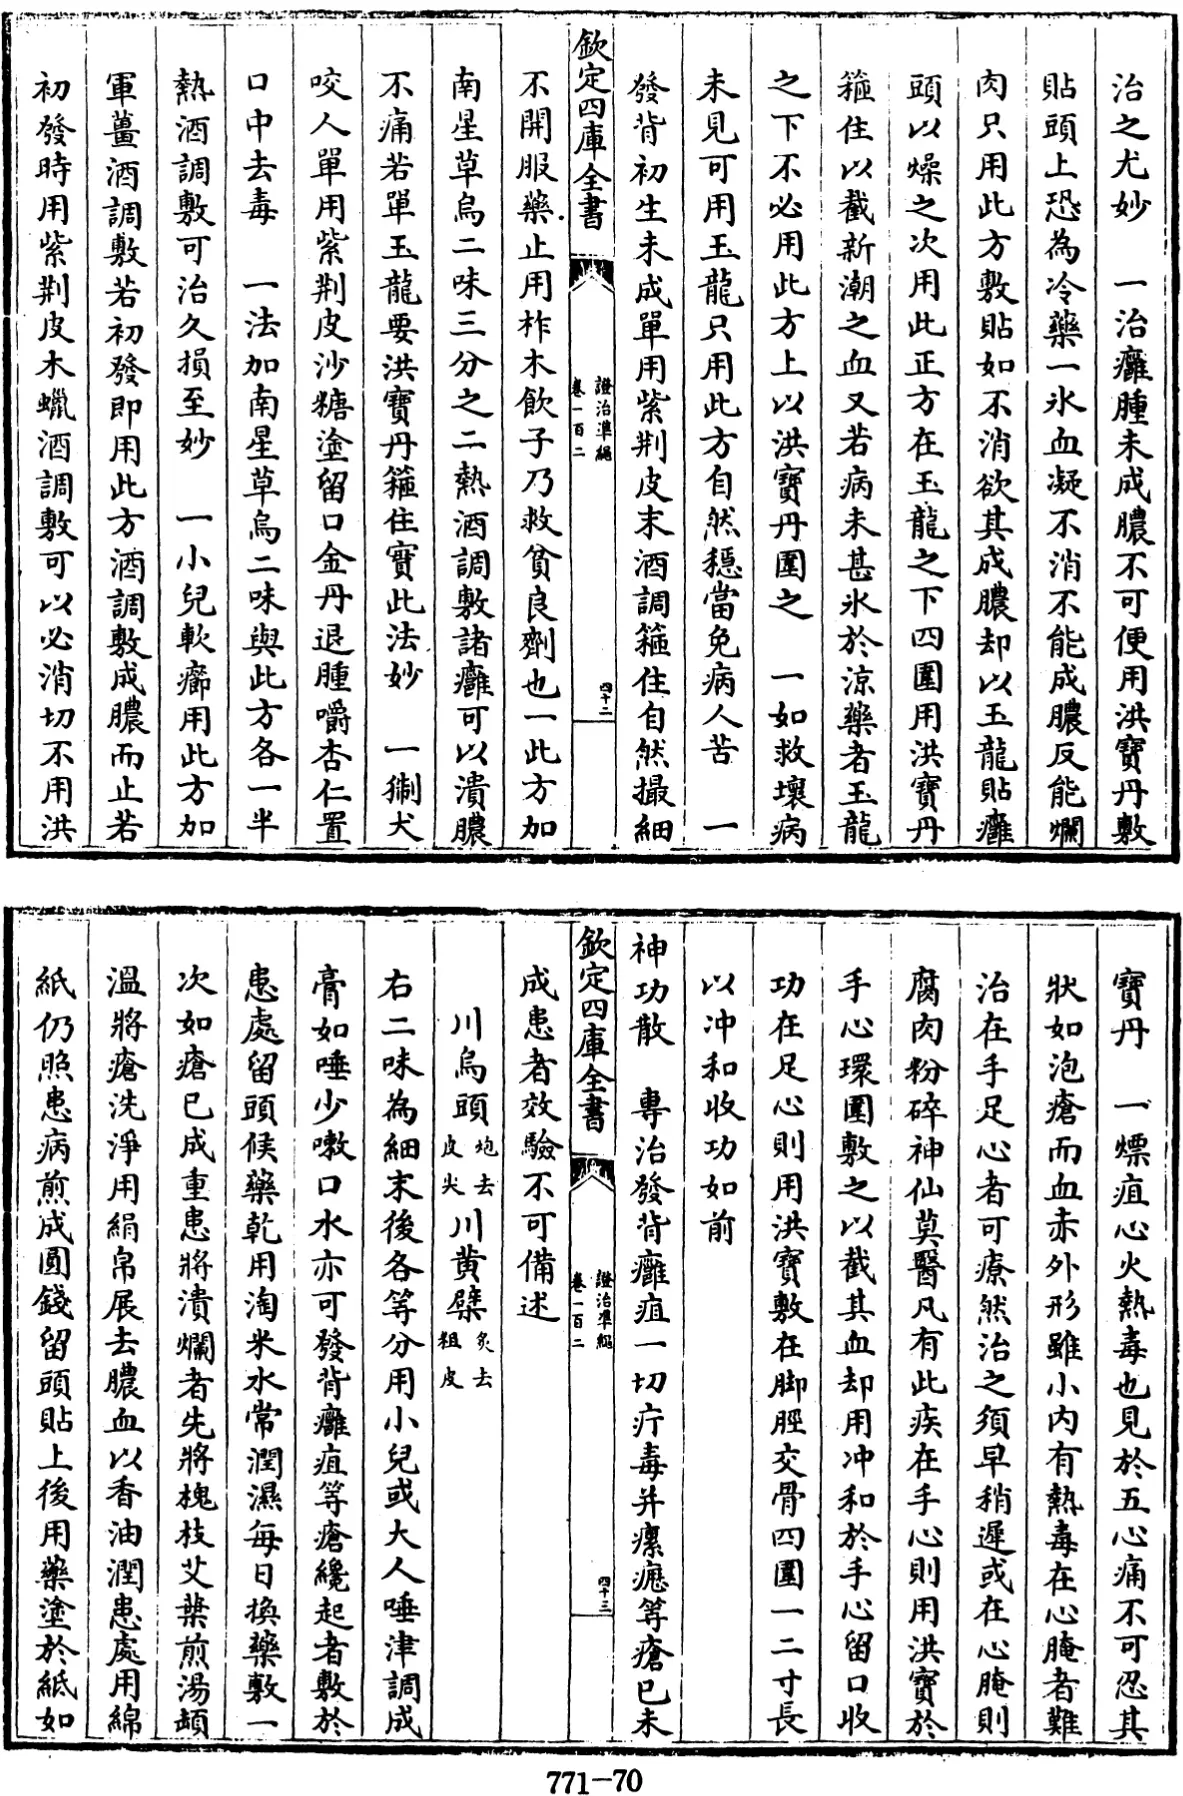 治之尤妙　一治癰腫未成膿不可便用洪寶丹敷
貼頭上恐為冷藥一氷血凝不消不能成膿反能爛
肉只用此方敷貼如不消欲其成膿却以玉龍貼癰
頭以燥之次用此正方在玉龍之下四圍用洪寶丹
箍住以截新潮之血又若病未甚氷於涼藥者玉龍
之下不必用此方上以洪寶丹圍之　一如救壞病
未見可用玉龍只用此方自然穩當免病人苦　一
發背初生未成單用紫荆皮末酒調箍住自然撮細
欽定四庫全書
證治準繩
卷一百二
四十二
不開服藥止用柞木飲子乃救貧良劑也一此方加
南星草烏二味三分之二熱酒調敷諸癰可以潰膿
不痛若單玉龍要洪寶丹箍住寶此法妙　一猘犬
咬人單用紫荆皮沙糖塗留口金丹退腫嚼杏仁置
口中去毒　一法加南星草烏二味與此方各一半
熱酒調敷可治久損至妙　一小兒軟癤用此方加
軍薑酒調敷若初發即用此方酒調敷成膿而止若
初發時用紫荆皮木蠟酒調敷可以必消切不用洪
寶丹　一熛疽心火熱毒也見於五心痛不可忍其
狀如泡瘡而血赤外形雖小内有熱毒在心腌者難
治在手足心者可療然治之須早稍遲或在心腌則
腐肉粉碎神仙莫醫凡有此疾在手心則用洪寶於
手心環圍敷之以截其血却用冲和於手心留口收
功在足心則用洪寶敷在脚脛交骨四圍一二寸長
以冲和收功如前
神功散　專治發背癰疽一切疔毒并瘰癧等瘡已未
欽定四庫全書
證治準繩
卷一百二
四十三
成患者效驗不可備述
川烏頭炮去皮尖川黄蘗炙去粗皮
右二味為細末後各等分用小兒或大人唾津調成
膏如唾少嗽口水亦可發背癰疽等瘡纔起者敷於
患處留頭候藥乾用淘米水常潤濕每日換藥敷一
次如瘡已成重患將潰爛者先將槐枝艾葉煎湯頓
溫將瘡洗淨用絹帛展去膿血以香油潤患處用綿
紙仍照患病煎成圓錢留頭貼上後用藥塗於紙如
771—70